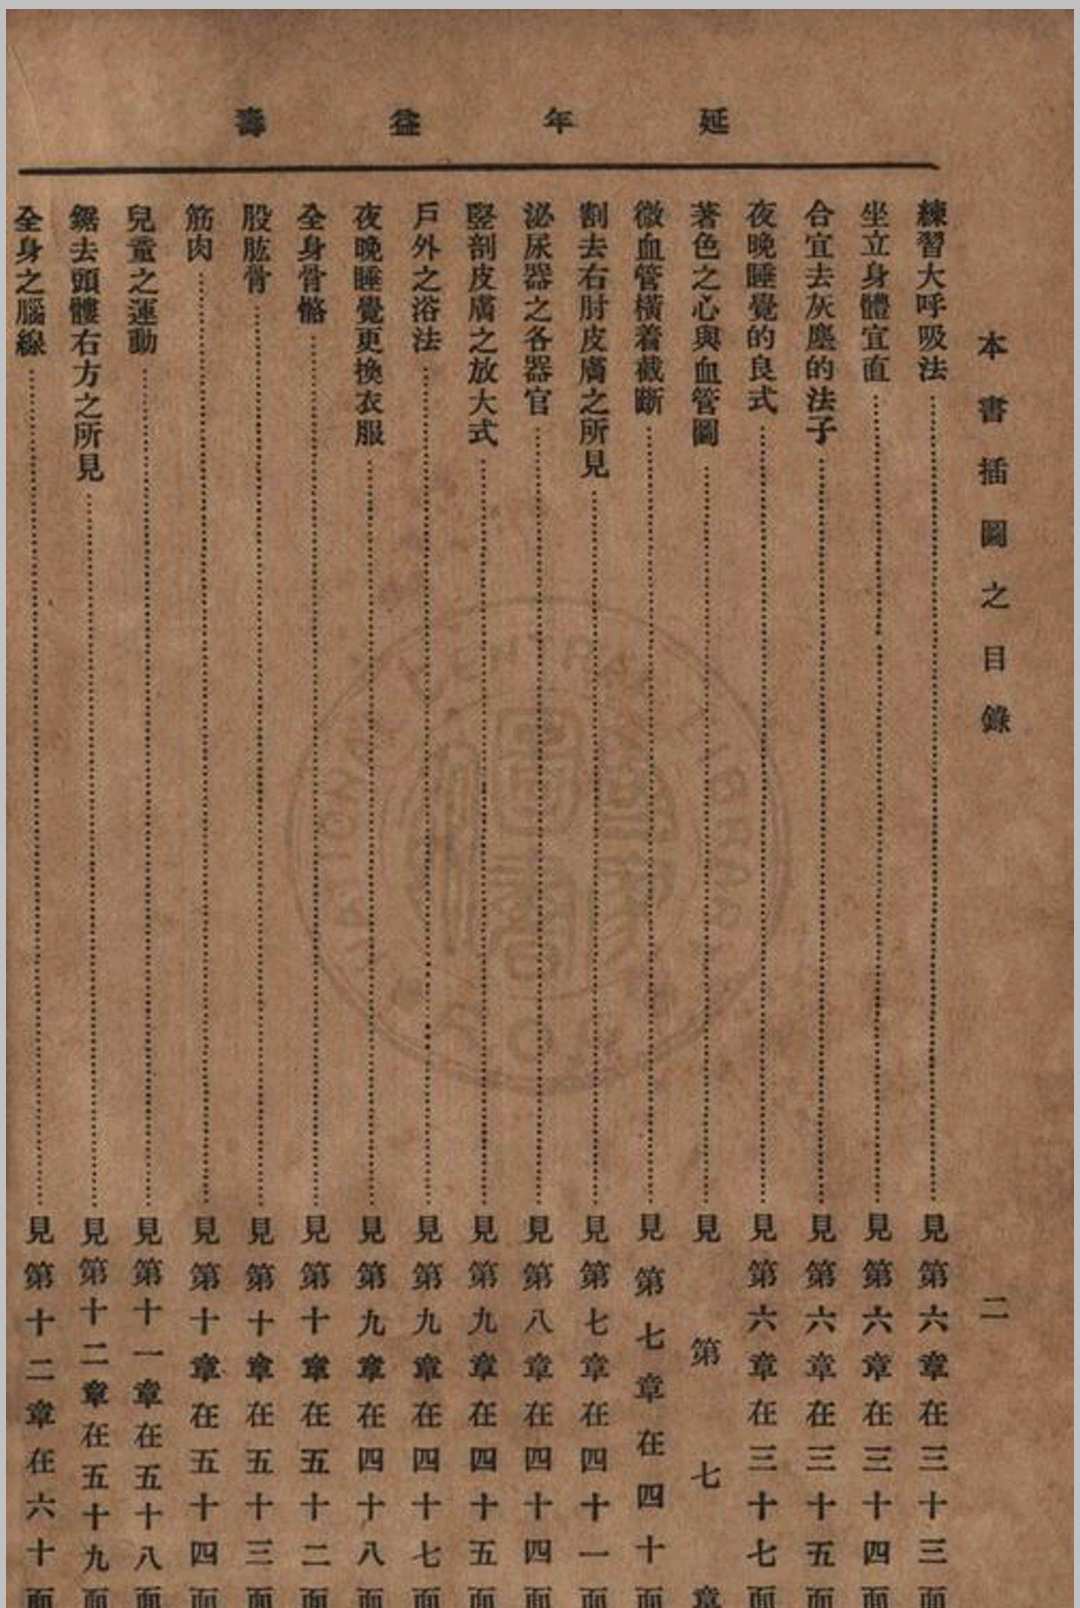 延年益壽
本書插圖之目錄 二
練習大呼吸法…………見第六章在三十三面
坐立身體宜直…………見第六章在三十四面
合宜去灰塵的法子…………見第六章在三十五面
夜晚睡覺的良式…………見第六章在三十七面
著色之心與血管圖…………見第七章
微血管橫着截斷…………見第七章在四十面
割去右肘皮膚之所見…………見第七章在四十一面
泌尿器之各器官…………見第八章在四十四面
竪剖皮膚之放大式…………見第九章在四十五面
戶外之浴法…………見第九章在四十七面
夜晚睡覺更換衣服…………見第九章在四十八面
全身骨骼…………見第十章在五十二面
股肱骨…………見第十章在五十三面
筋肉…………見第十章在五十四面
兒童之運動…………見第十一章在五十八面
鋸去頭髏右方之所見…………見第十二章在五十九面
全身之腦線…………見第十二章在六十面